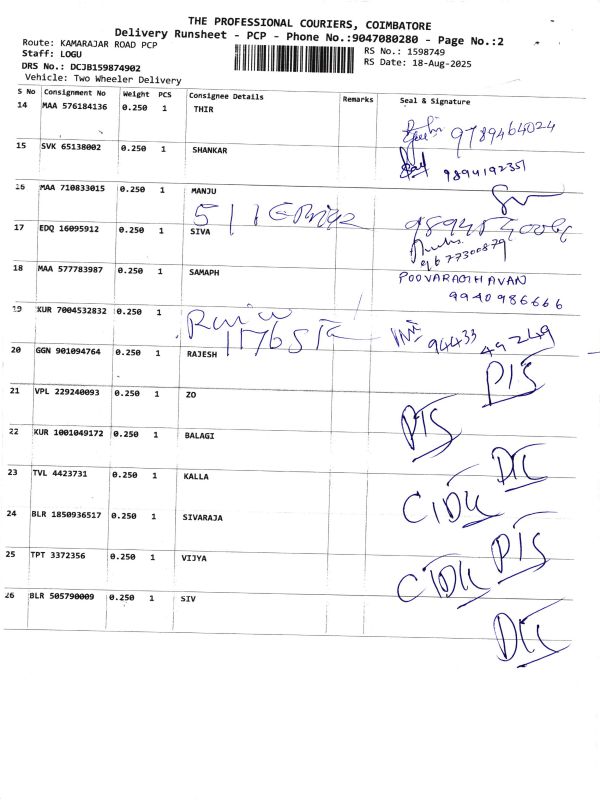 THE PROFESSIONAL COURIERS, COIMBATORE
Delivery Runsheet - PCP - Phone No.:9047080280 - Page No.:2
Route: KAMARAJAR ROAD PCP
RS No.: 1598749
Staff: LOGU
RS Date: 18-Aug-2025
DRS No.: DCJB159874902
Vehicle: Two Wheeler Delivery
S No Consignment No Weight PCS Consignee Details Remarks Seal & Signature
14 MAA 576184136 0.250 1 THIR
9789464024
15 SVK 65138002 0.250 1 SHANKAR
9894192351
16 MAA 710833015 0.250 1 MANJU
17 EDQ 16095912 0.250 1 SIVA
9677300879
18 MAA 577783987 0.250 1 SAMAPH
POOVARAGHAVAN
9940986666
19 KUR 7004532832 0.250 1
94433 49249
20 GGN 901094764 0.250 1 RAJESH
21 VPL 229240093 0.250 1 ZO
22 KUR 1001049172 0.250 1 BALAGI
23 TVL 4423731 0.250 1 KALLA
24 BLR 1850936517 0.250 1 SIVARAJA
25 TPT 3372356 0.250 1 VIJYA
26 BLR 505790009 0.250 1 SIV